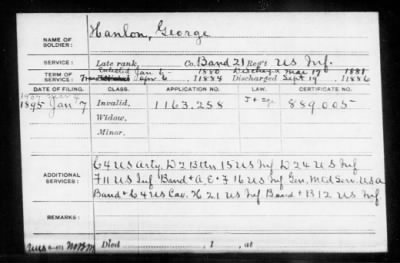 NAME OF SOLDIER: Hanlon, George
SERVICE: Late rank, Co. Band 21 Reg't US Inf.
TERM OF SERVICE: Enlisted Jan 6, 1880 Discharged Mar 17, 1881
Apr 6, 1884 Discharged Sept 19, 1886
DATE OF FILING. CLASS. APPLICATION NO. LAW. CERTIFICATE NO.
1895 Jan 7 Invalid, 1163.258 889.005
Widow,
Minor,
ADDITIONAL SERVICES:
C 4 US Arty, D 2 Bttn 15 US Inf D 24 U S Inf
F 11 US Inf Band + A, E + F 16 US Inf Gen. Med Serv. USA
Band + L 4 US Cav. H 21 US Inf Band + B 12 US Inf
REMARKS:
Died , 1 , at